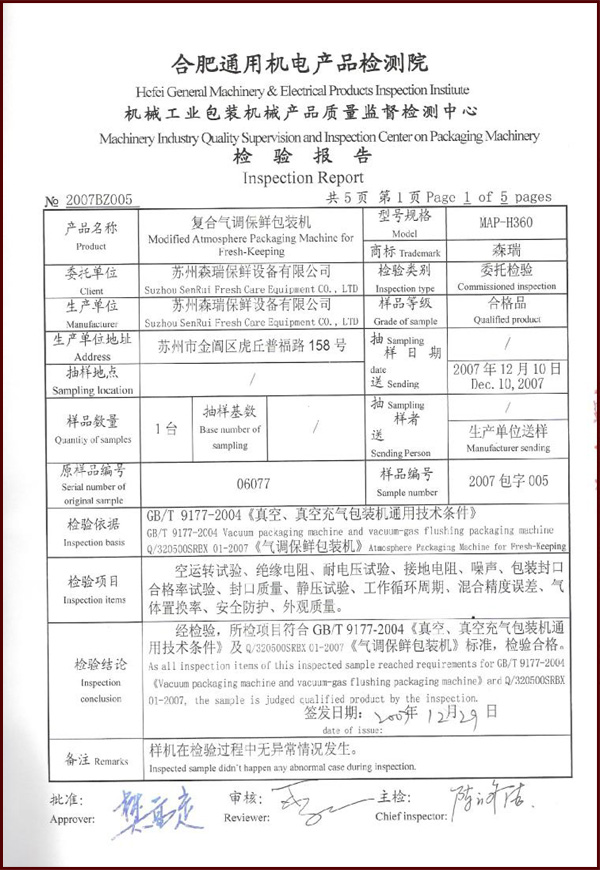 合肥通用机电产品检测院
Hefei General Machinery & Electrical Products Inspection Institute
机械工业包装机械产品质量监督检测中心
Machinery Industry Quality Supervision and Inspection Center on Packaging Machinery
检验报告
Inspection Report
№ 2007BZ005 共 5 页 第 1 页 Page 1 of 5 pages
产品名称 Product
复合气调保鲜包装机
Modified Atmosphere Packaging Machine for
Fresh-Keeping
型号规格 Model
MAP-H360
商标 Trademark
森瑞
委托单位 Client
苏州森瑞保鲜设备有限公司
Suzhou SenRui Fresh Care Equipment CO., LTD
检验类别 Inspection type
委托检验
Commissioned inspection
生产单位 Manufacturer
苏州森瑞保鲜设备有限公司
Suzhou SenRui Fresh Care Equipment CO., LTD
样品等级 Grade of sample
合格品
Qualified product
生产单位地址 Address
苏州市金阊区虎丘普福路 158 号
抽 Sampling
样 日 期
date
送 Sending
/
2007 年 12 月 10 日
Dec. 10, 2007
抽样地点 Sampling location
/
样品数量 Quantity of samples
1 台
抽样基数
Base number of
sampling
/
抽 Sampling
样者
送
Sending Person
/
生产单位送样
Manufacturer sending
原样品编号
Serial number of
original sample
06077
样品编号 Sample number
2007 包字 005
检验依据 Inspection basis
GB/T 9177-2004《真空、真空充气包装机通用技术条件》
GB/T 9177-2004 Vacuum packaging machine and vacuum-gas flushing packaging machine
Q/320500SRBX 01-2007《气调保鲜包装机》Atmosphere Packaging Machine for Fresh-Keeping
检验项目 Inspection items
空运转试验、绝缘电阻、耐电压试验、接地电阻、噪声、包装封口
合格率试验、封口质量、静压试验、工作循环周期、混合精度误差、气
体置换率、安全防护、外观质量。
检验结论
Inspection
conclusion
经检验，所检项目符合 GB/T 9177-2004《真空、真空充气包装机通
用技术条件》及 Q/320500SRBX 01-2007《气调保鲜包装机》标准，检验合格。
As all inspection items of this inspected sample reached requirements for GB/T 9177-2004
《Vacuum packaging machine and vacuum-gas flushing packaging machine》and Q/320500SRBX
01-2007, the sample is judged qualified product by the inspection.
签发日期：2007年 12月29日
date of issue:
备注 Remarks
样机在检验过程中无异常情况发生。
Inspected sample didn't happen any abnormal case during inspection.
批准： 审核： 主检：
Approver: Reviewer: Chief inspector: